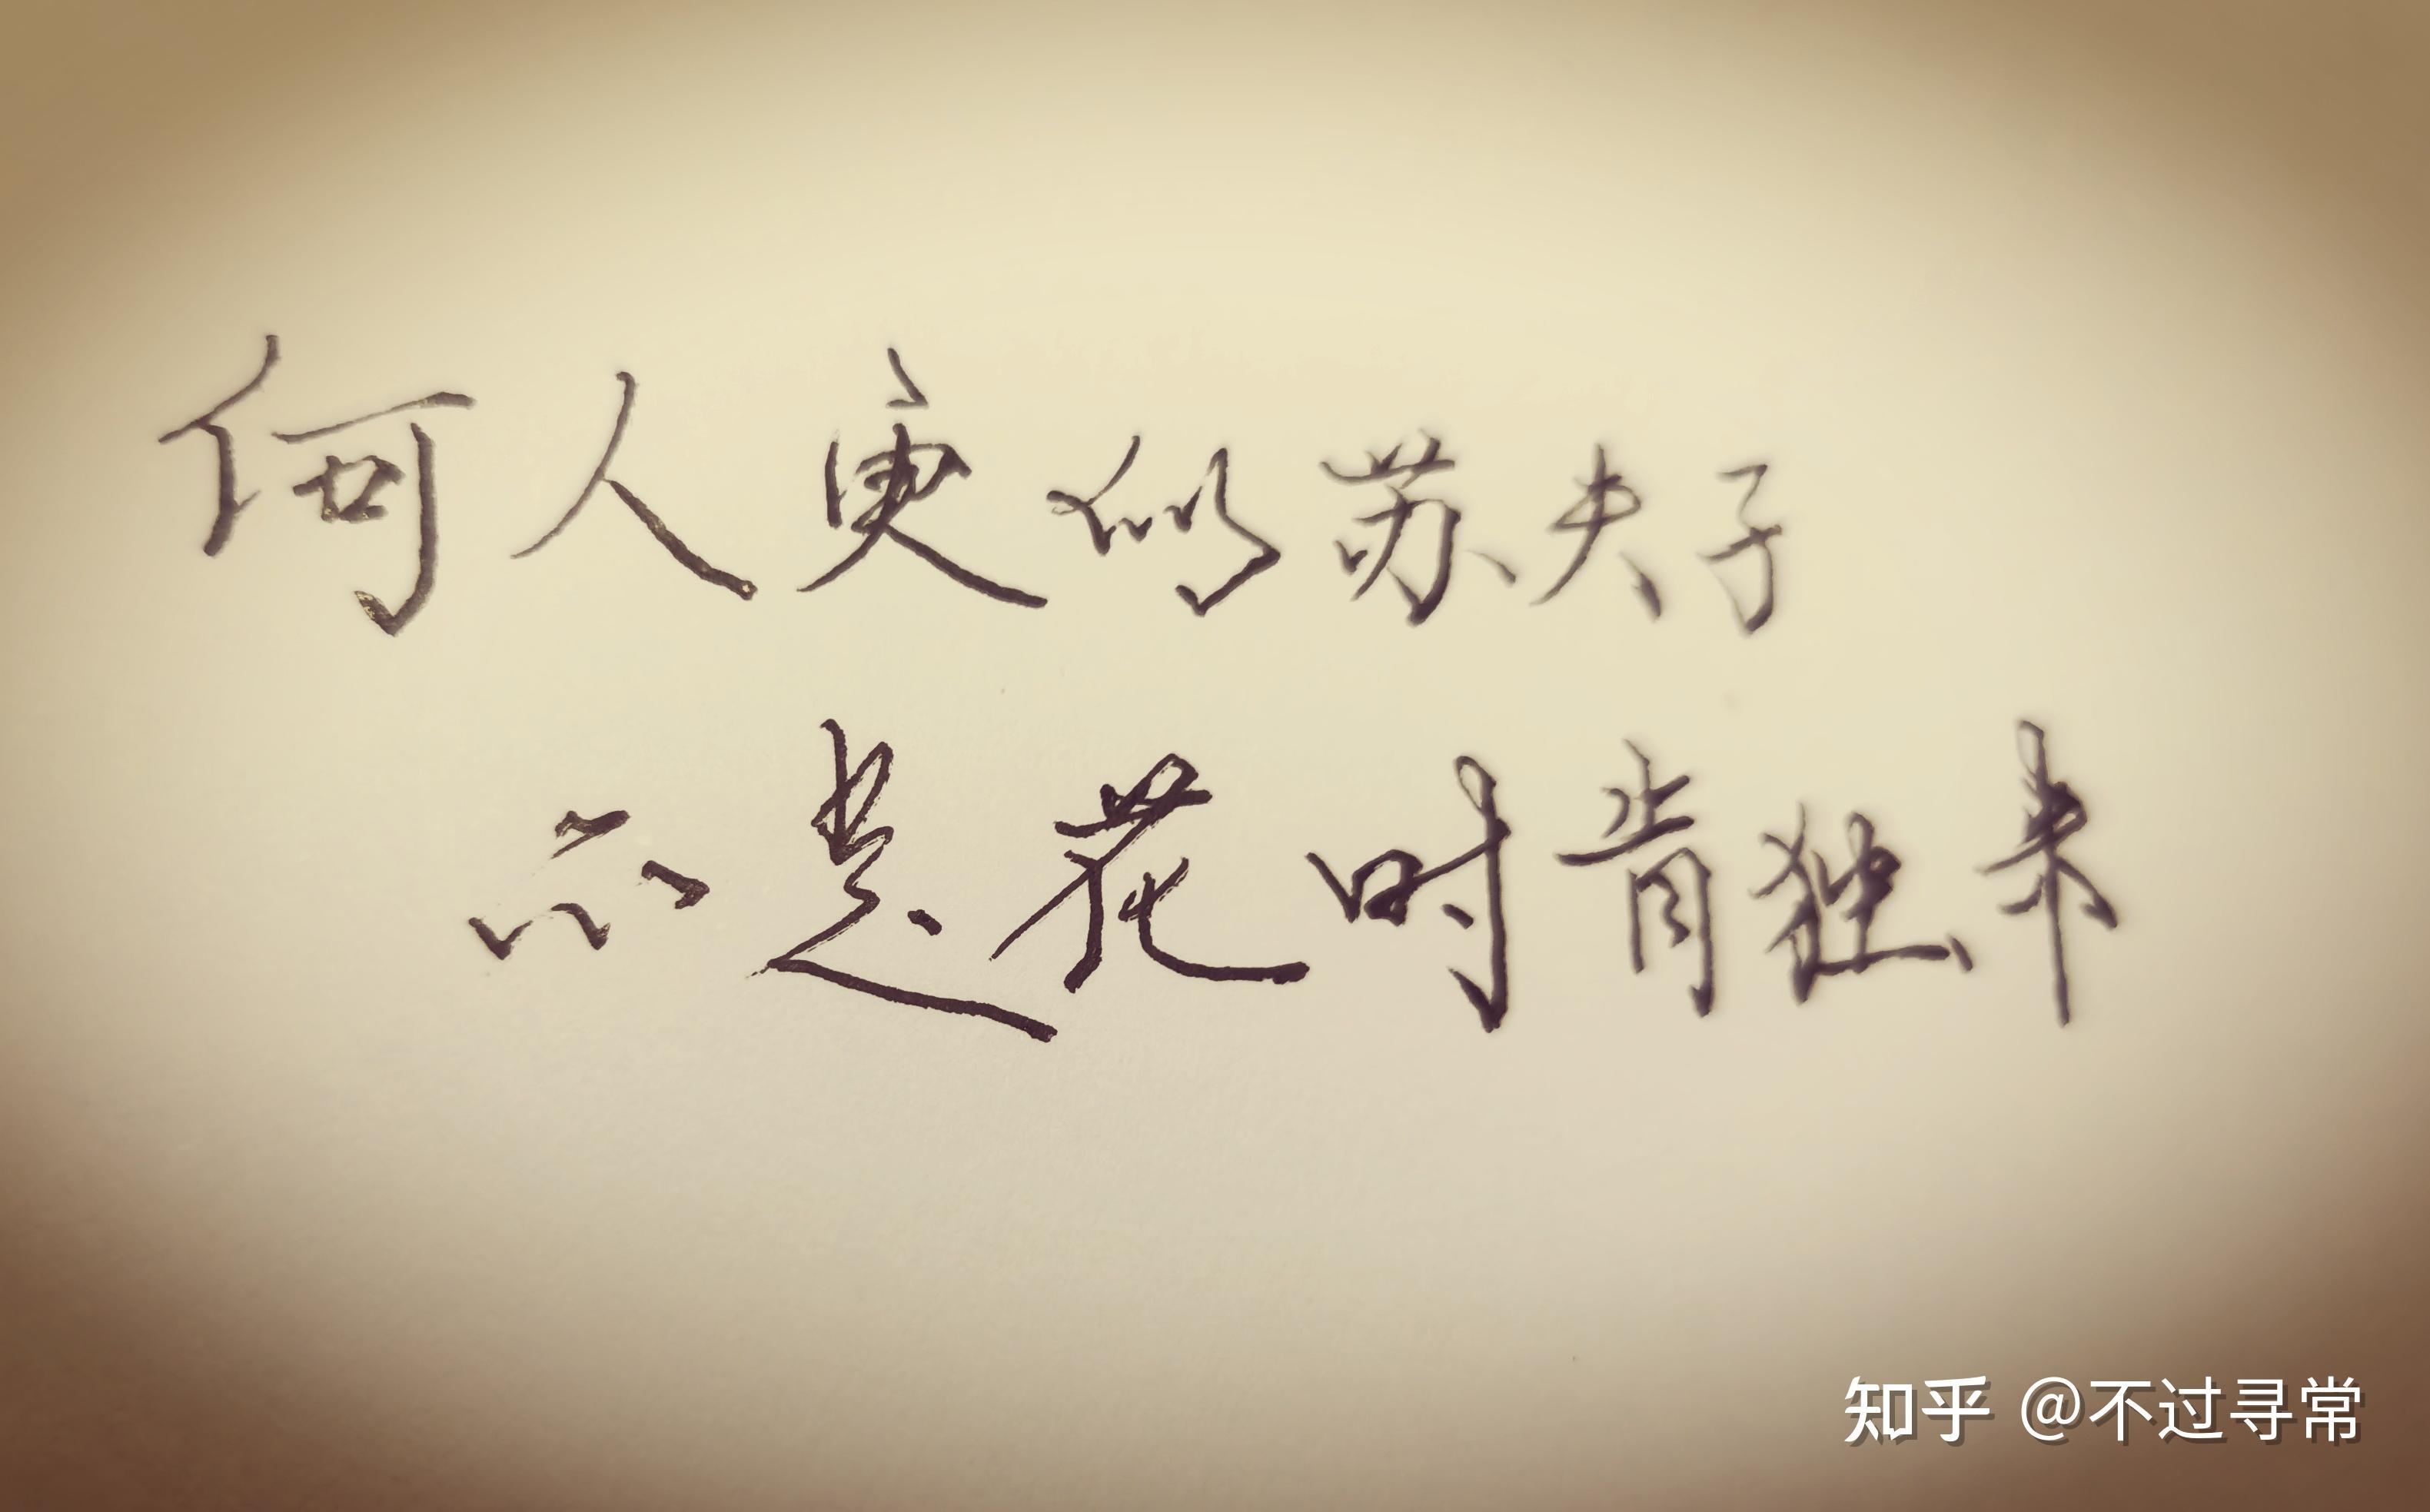 何人更似苏夫子
不是花时肯独来
知乎 @不过寻常